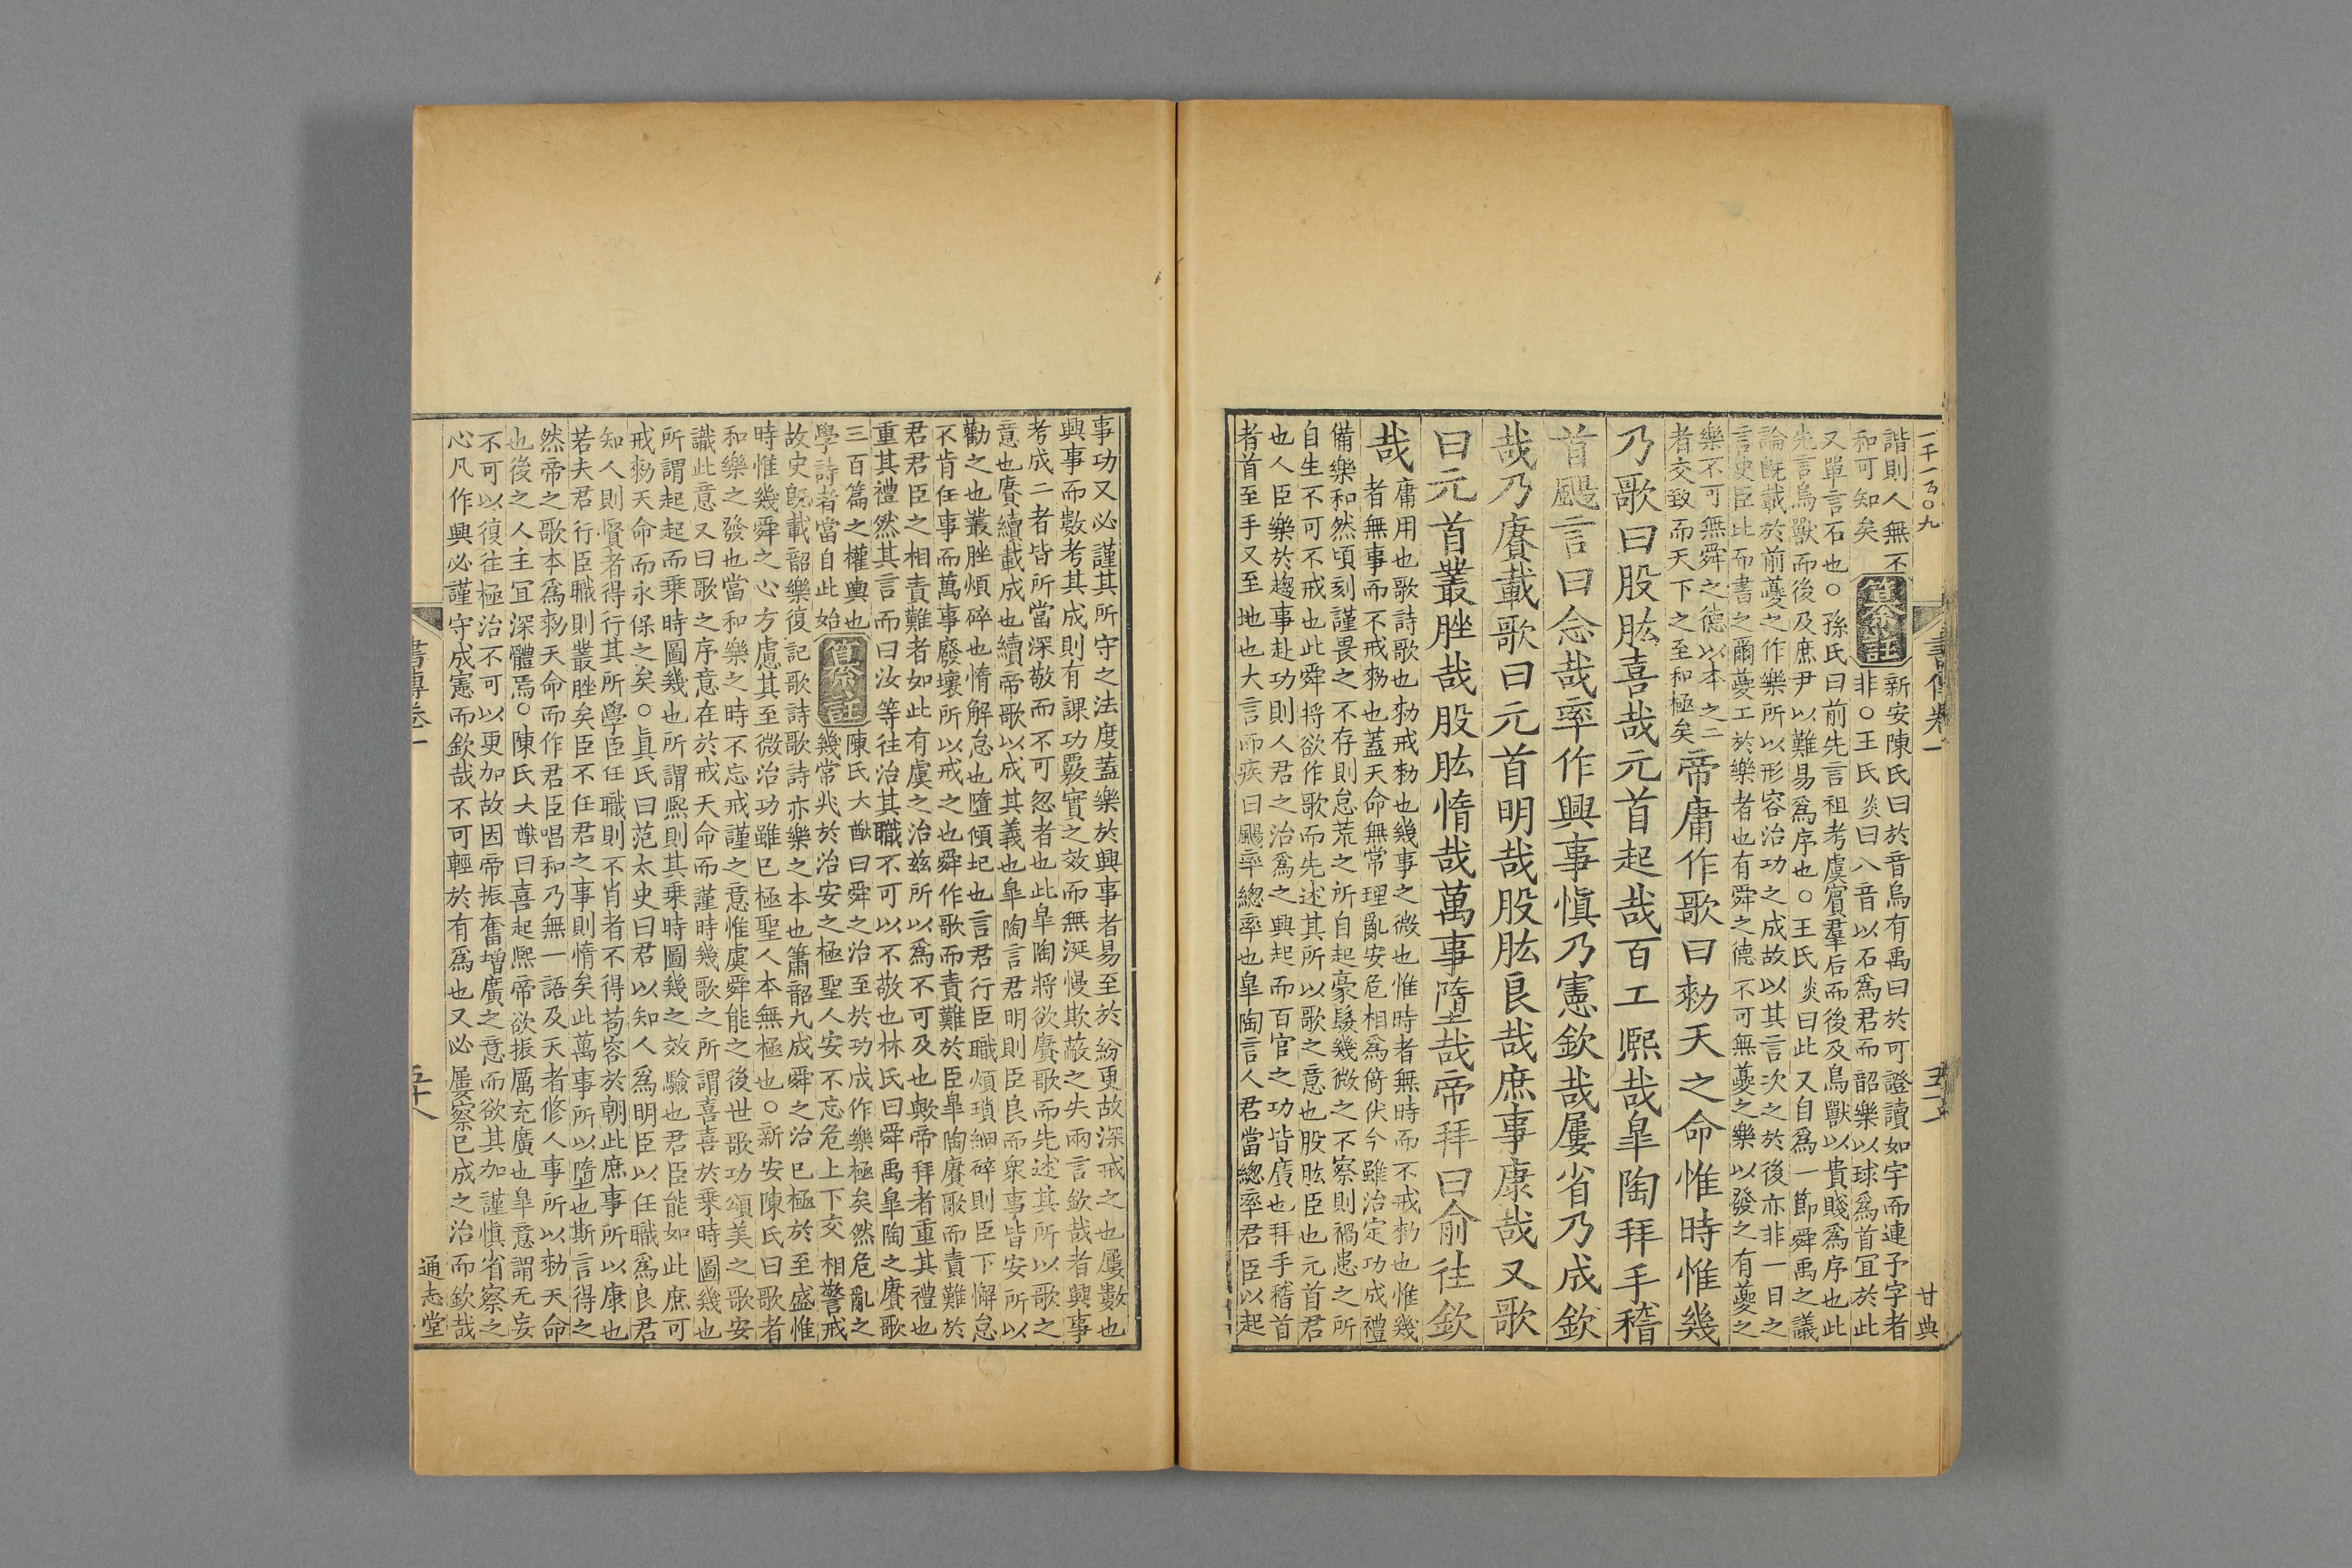 一千一百〇九
諧則人無不
和可知矣
纂註
新安陳氏曰於音烏有禹曰於可證讀如字而連予字者
非〇王氏炎曰八音以石爲君而韶樂以球爲首宜於此
又單言石也〇孫氏曰前先言祖考虞賓羣后而後及鳥獸以貴賤爲序也此
先言鳥獸而後及庶尹以難易爲序也〇王氏炎曰此又自爲一節舜禹之議
論旣載於前夔之作樂所以形容治功之成故以其言次之於後亦非一日之
言史臣比而書之爾夔工於樂者也有舜之德不可無夔之樂以發之有夔之
樂不可無舜之德以本之二
者交致而天下之至和極矣
帝庸作歌曰勑天之命惟時惟幾
乃歌曰股肱喜哉元首起哉百工熈哉臯陶拜手稽
首颺言曰念哉率作興事愼乃憲欽哉屢省乃成欽
哉乃賡載歌曰元首明哉股肱良哉庶事康哉又歌
曰元首叢脞哉股肱惰哉萬事墮哉帝拜曰俞徃欽
哉
庸用也歌詩歌也勑戒勑也幾事之微也惟時者無時而不戒勑也惟幾
者無事而不戒勑也蓋天命無常理亂安危相爲倚伏今雖治定功成禮
備樂和然頃刻謹畏之不存則怠荒之所自起豪髮幾微之不察則禍患之所
自生不可不戒也此舜將欲作歌而先述其所以歌之意也股肱臣也元首君
也人臣樂於趨事赴功則人君之治爲之興起而百官之功皆廣也拜手稽首
者首至手又至地也大言而疾曰颺率總率也臯陶言人君當總率君臣以起
書傳卷一
甘典
事功又必謹其所守之法度蓋樂於興事者易至於紛更故深戒之也屢數也
興事而數考其成則有課功覈實之效而無誕慢欺蔽之失兩言欽哉者興事
考成二者皆所當深敬而不可忽者也此臯陶將欲賡歌而先述其所以歌之
意也賡續載成也續帝歌以成其義也臯陶言君明則臣良而衆事皆安所以
勸之也叢脞煩碎也惰解怠也墮傾圮也言君行臣職煩瑣細碎則臣下懈怠
不肯任事而萬事廢壞所以戒之也舜作歌而責難於臣臯陶賡歌而責難於
君君臣之相責難者如此有虞之治兹所以爲不可及也歟帝拜者重其禮也
重其禮然其言而曰汝等徃治其職不可以不敬也林氏曰舜禹臯陶之賡歌
三百篇之權輿也
學詩者當自此始
纂註
陳氏大猷曰舜之治至於功成作樂極矣然危亂之
幾常兆於治安之極聖人安不忘危上下交相警戒
故史旣載韶樂復記歌詩歌詩亦樂之本也簫韶九成舜之治已極於至盛惟
時惟幾舜之心方慮其至微治功雖已極聖人本無極也〇新安陳氏曰歌者
和樂之發也當和樂之時不忘戒謹之意惟虞舜能之後世歌功頌美之歌安
識此意又曰歌之序意在於戒天命而謹時幾歌之所謂喜喜於乗時圖幾也
所謂起起而乗時圖幾也所謂熈則其乗時圖幾之效驗也君臣能如此庶可
戒勑天命而永保之矣〇眞氏曰范太史曰君以知人爲明臣以任職爲良君
知人則賢者得行其所學臣任職則不肖者不得苟容於朝此庶事所以康也
若夫君行臣職則叢脞矣臣不任君之事則惰矣此萬事所以墮也斯言得之
然帝之歌本爲勑天命而作君臣唱和乃無一語及天者修人事所以勑天命
也後之人主宜深體焉〇陳氏大猷曰喜起熈帝欲振厲充廣也臯意謂无妄
不可以復徃極治不可以更加故因帝振奮增廣之意而欲其加謹愼省察之
心凡作興必謹守成憲而欽哉不可輕於有爲也又必屢察已成之治而欽哉
書傳卷一
五十八
通志堂